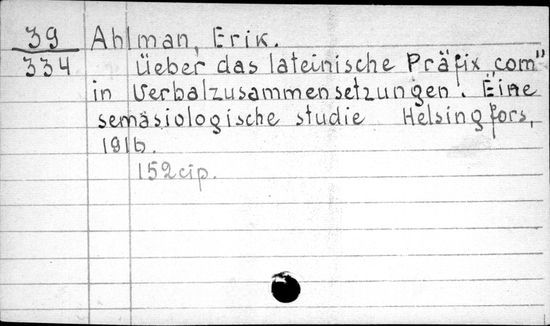 39 Ahlman, Erik.
334 Üeber das lateinische Präfix „com"
in Verbalzusammensetzungen. Eine
semäsiologische studie Helsingfors,
1916.
152 cip.